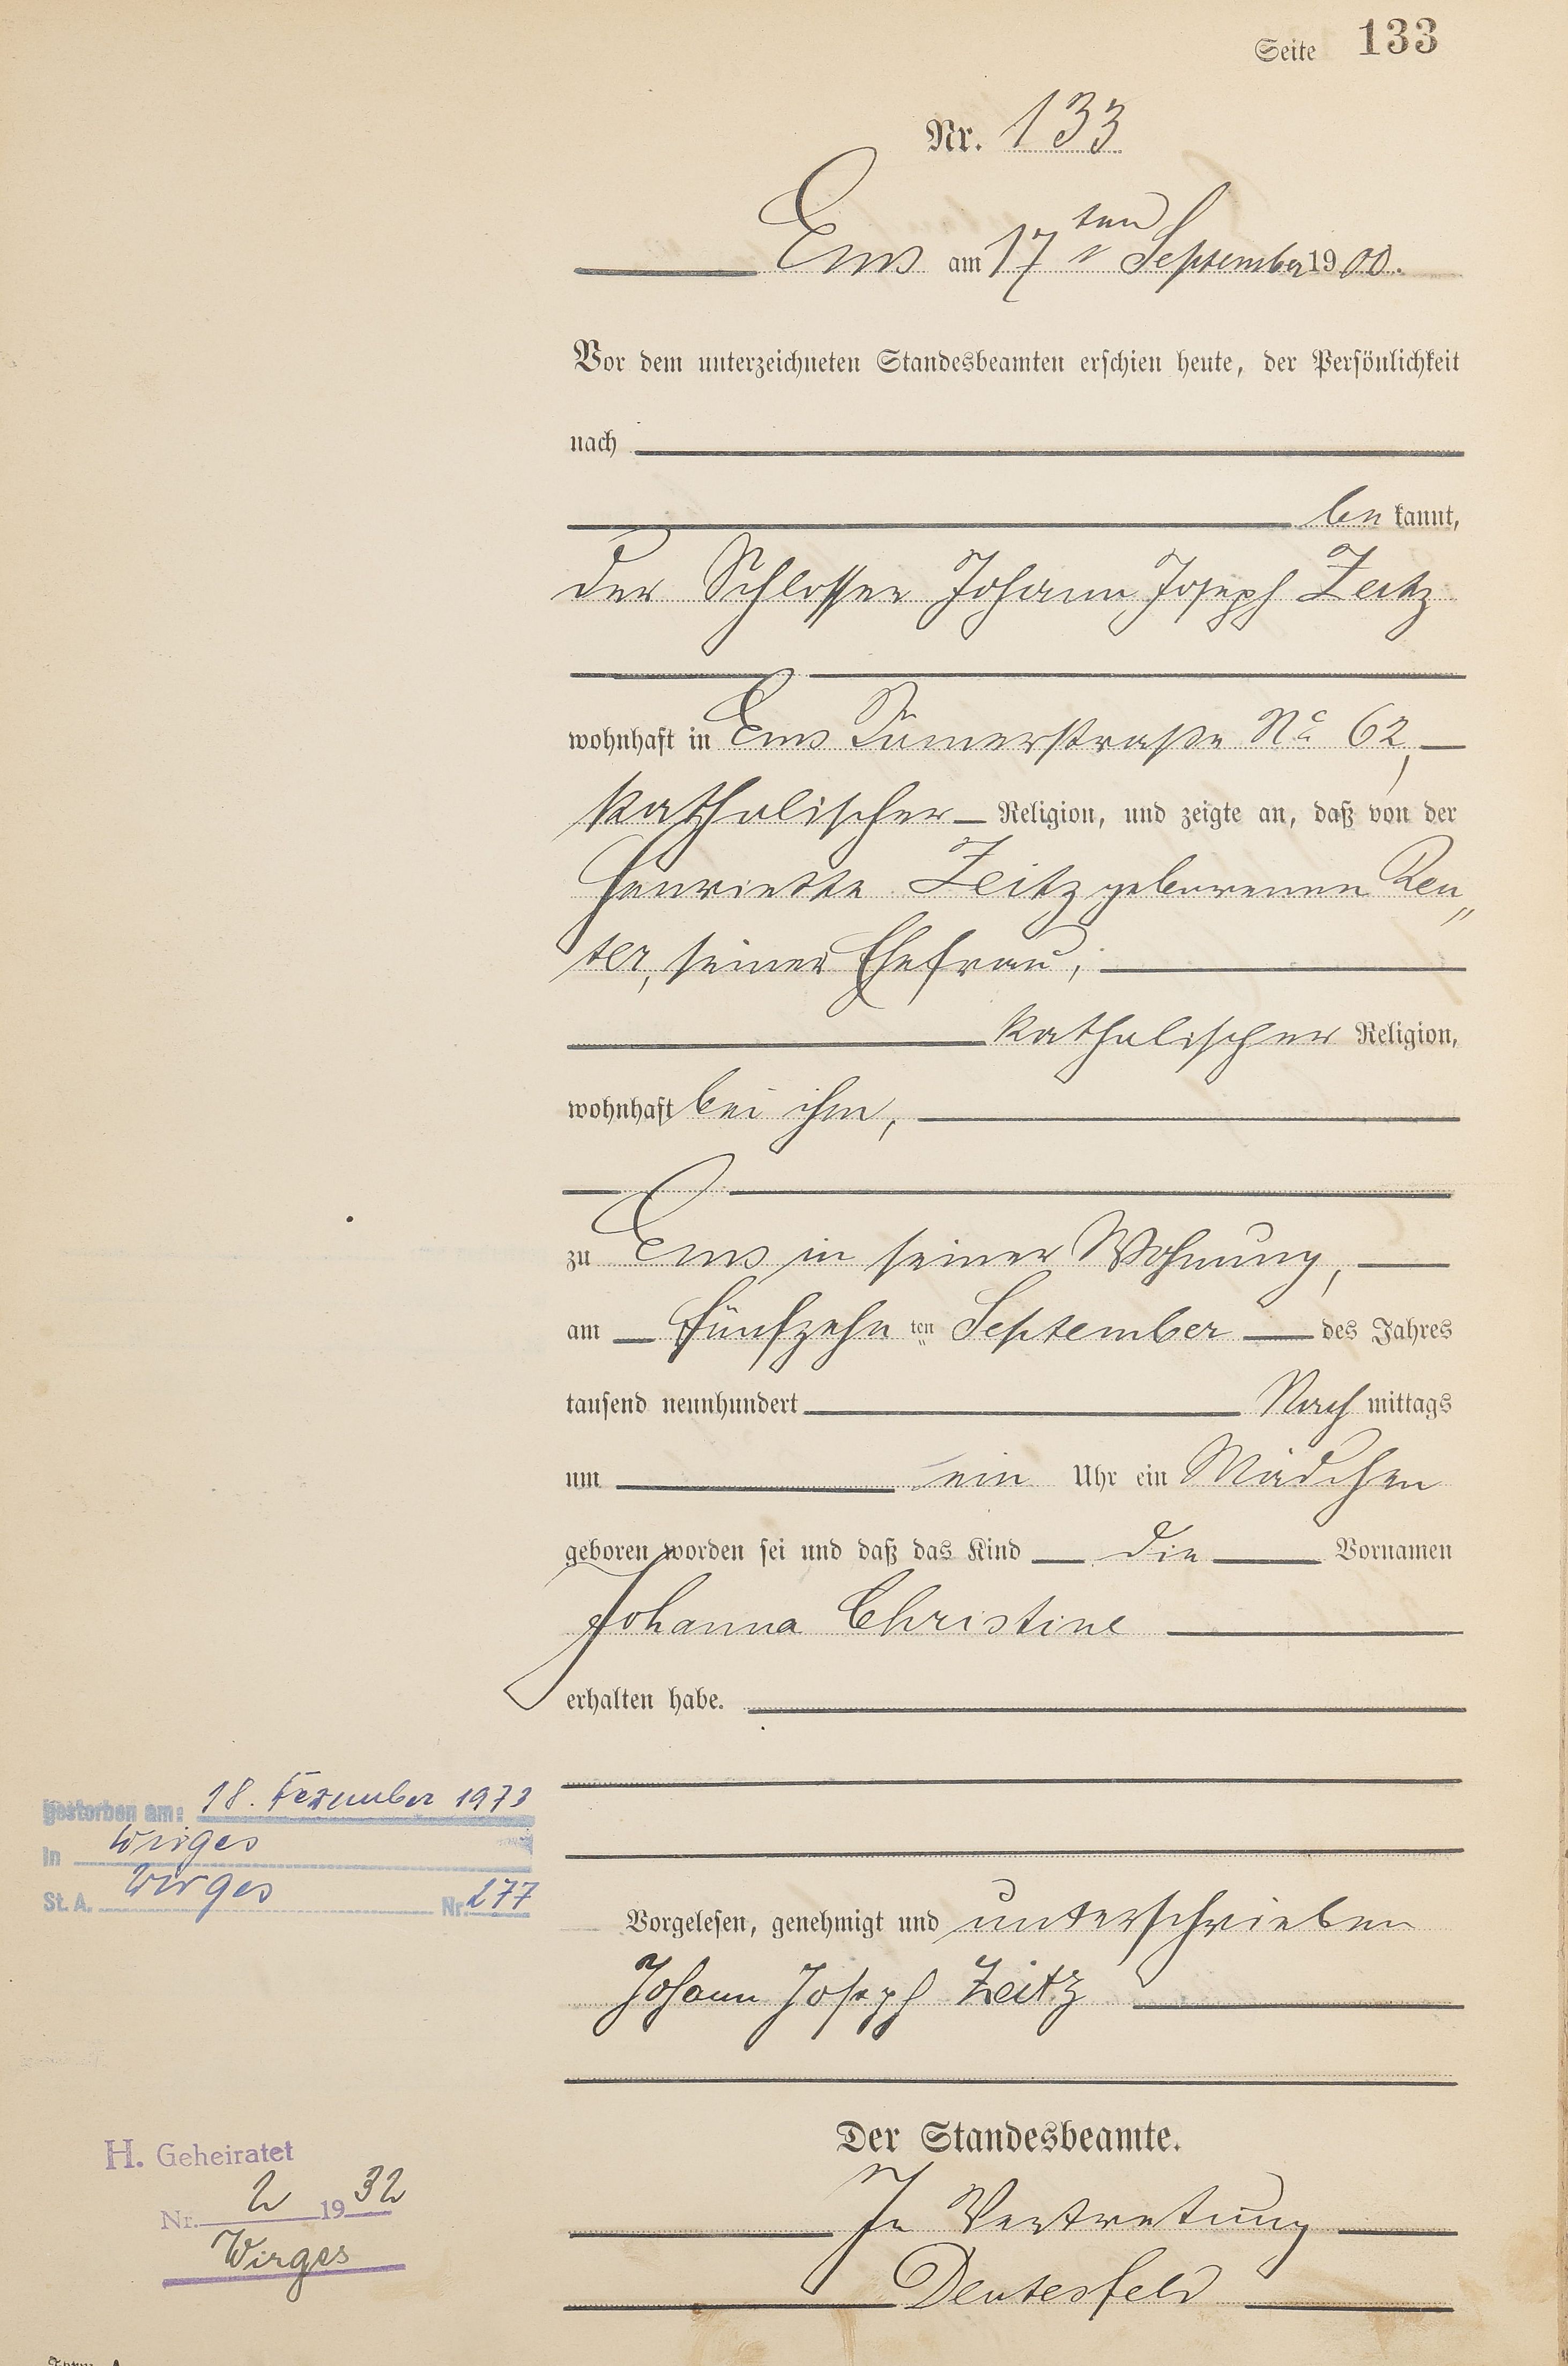 Seite 133
Nr. 133
Ems am 17ten September 1900.
Vor dem unterzeichneten Standesbeamten erschien heute, der Persönlichkeit
nach
be kannt,
der Schlosser Johann Joseph Zeitz
wohnhaft in Ems Römerstraße No 62,
katholischer Religion, und zeigte an, daß von der
Henriette Zeitz geborenen Reu„
ter, seiner Ehefrau,
katholischer Religion,
wohnhaft bei ihm,
zu Ems in seiner Wohnung,
am fünfzehn ten September des Jahres
tausend neunhundert Nach mittags
um ein Uhr ein Mädchen
geboren worden sei und daß das Kind die Vornamen
Johanna Christine
erhalten habe.
gestorben am: 18. Dezember 1973
in Wirges
St. A. Wirges Nr. 277
Vorgelesen, genehmigt und unterschrieben
Johann Joseph Zeitz
Der Standesbeamte.
H. Geheiratet
Nr. 2 1932
Wirges
In Vertretung
Deutesfeld